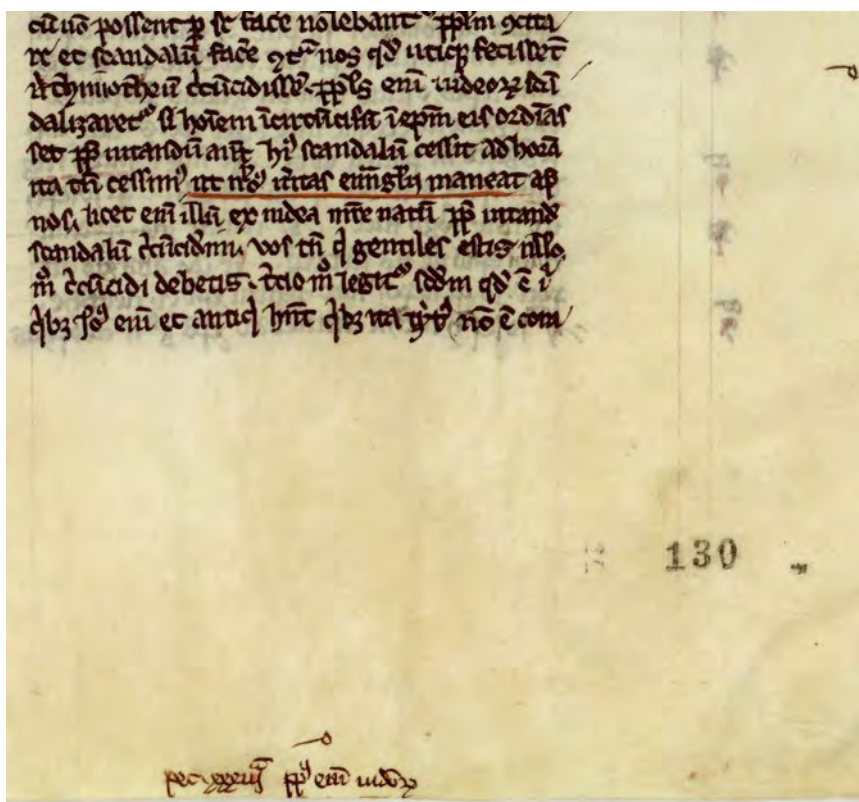 cū uō possent p se facē nolebant ppľm ꝯcita
re et scandalū facē ꝯtᵃ nos qđ utiqꝫ fecissēt
thymotheū cͥcūcidissē. ppľs enī iudeoꝝ scā
dalizaretᵘʳ si hoīem īcircūcisū ī epm eis ordīas
set ꝓp uitandū aut hͥ scandalū cessit ad horā
ita tn̄ cessimꝰ ut uͥitas euuīglij maneat ap
nos, licet enī illū ex iudea mr̄e natū ꝓp uitand
scandalū cͥcūcidim, uos tn̄ qͥ gentiles estis nłlo
mͦ cͥcūcidi debetis. t̄cio mͦ legitᵘʳ sđm qđ ē ī
qͥbꝫ enī et antiqͥ hn̄t qͥbꝫ ita nō ē com
130
pec. xxxiiij ppľs enī iudoꝝ